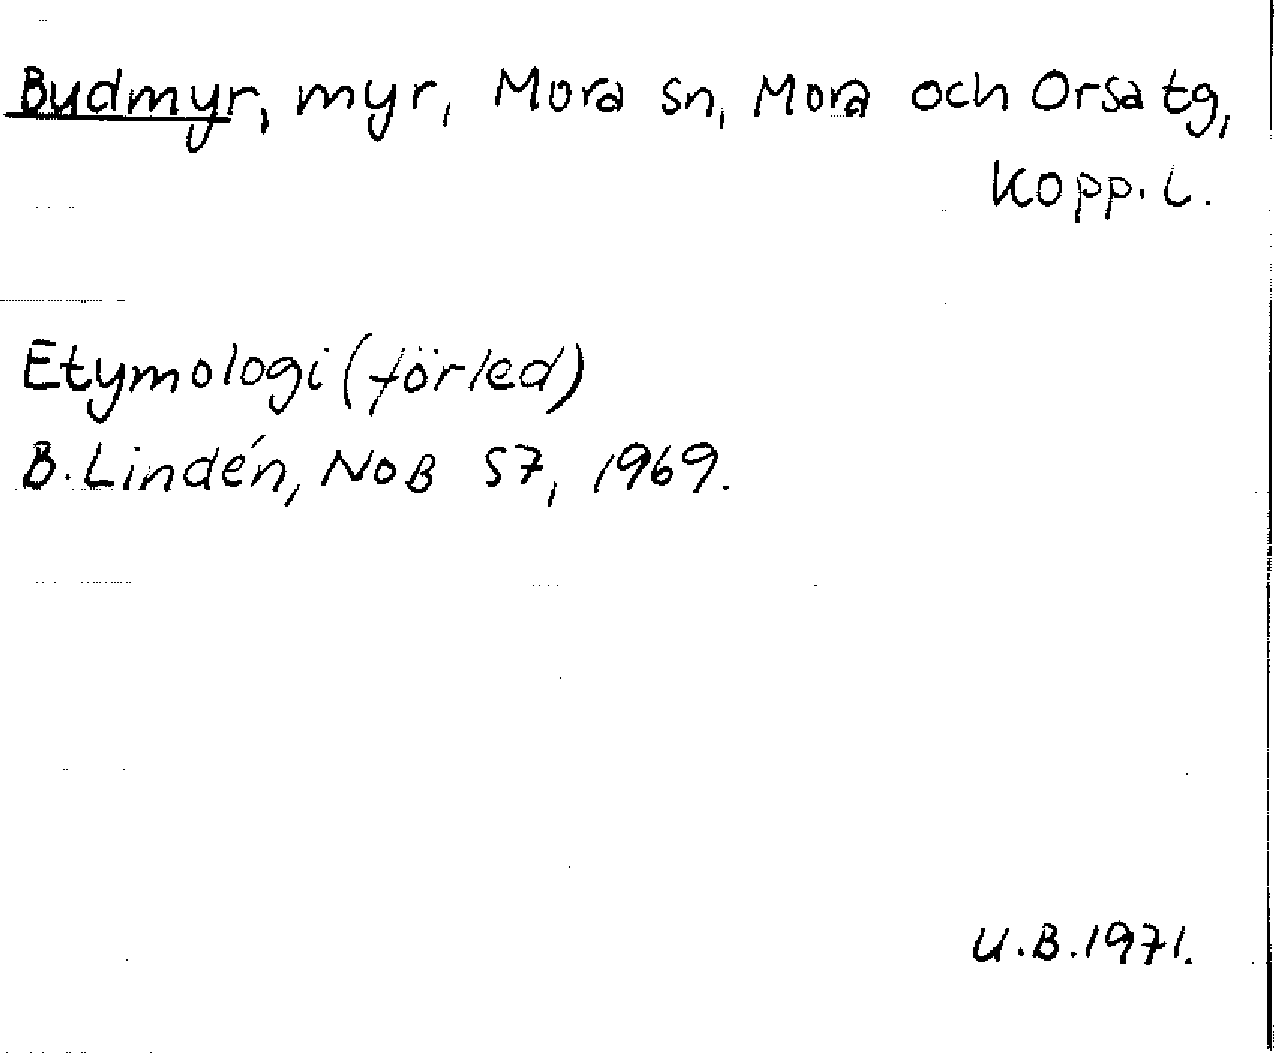 Budmyr, myr, Mora sn, Mora och Orsa tg,
Kopp. l.
Etymologi (förled)
B. Lindén, NoB 57, 1969.
U.B. 1971.